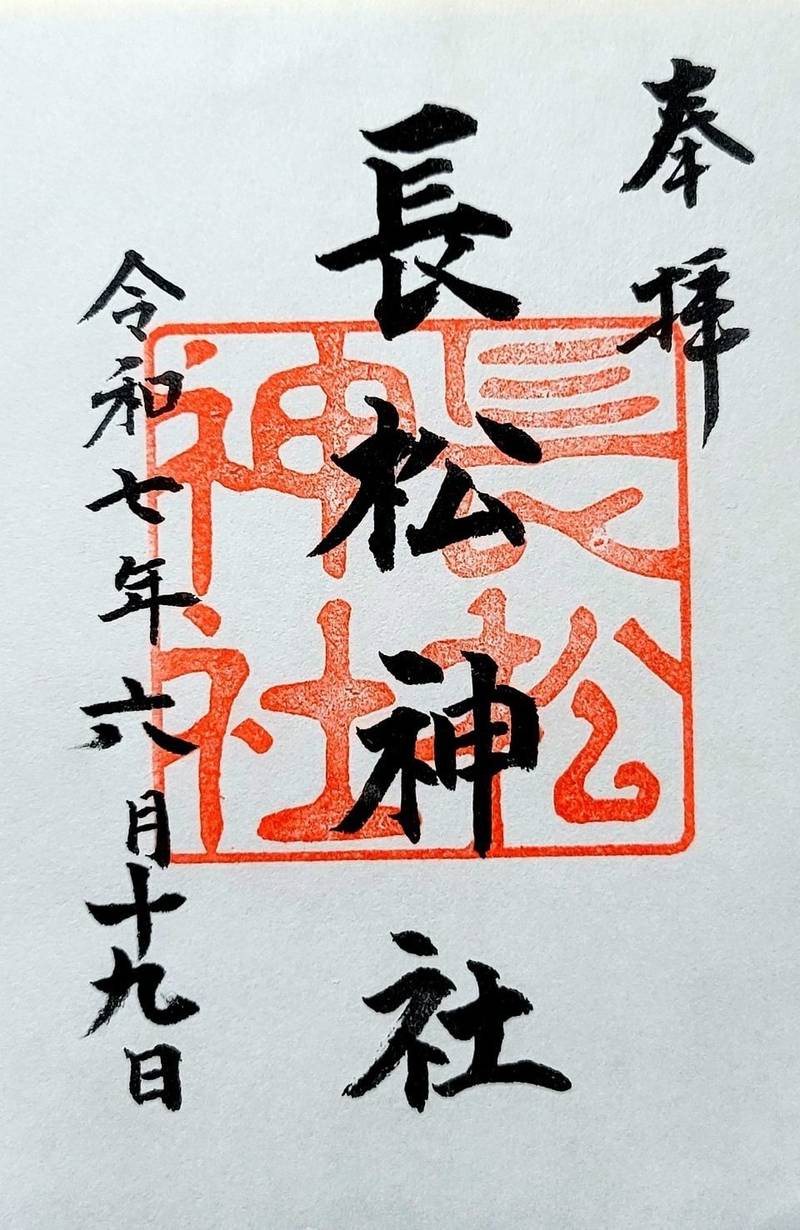 奉拝
長松神社
令和七年六月十九日
長松
神社